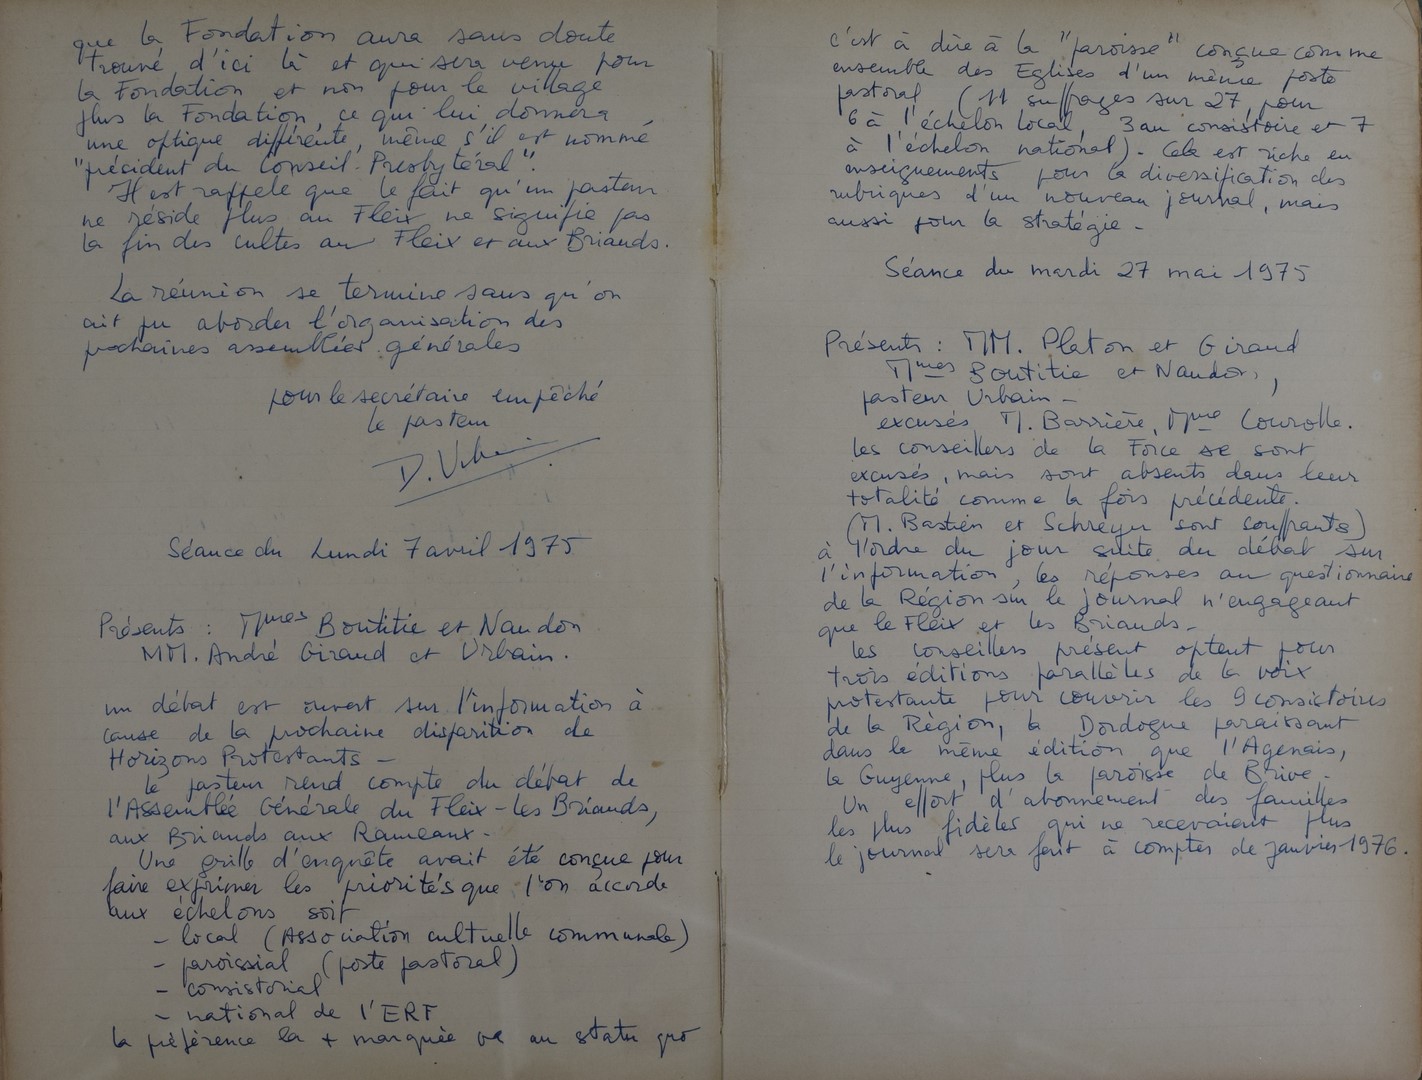 que la Fondation aura sans doute
trouvé d'ici là et qui sera venu pour
la Fondation et non pour le village
plus la Fondation, ce qui lui donnera
une optique différente, même s'il est nommé
"président du Conseil Presbytéral".
Il est rappelé que le fait qu'un pasteur
ne réside plus au Fleix ne signifie pas
la fin des cultes au Fleix et aux Briands.
La réunion se termine sans qu'on
ait pu aborder l'organisation des
prochaines assemblées générales
pour le secrétaire empêché
le pasteur
D. Urbain
Séance du Lundi 7 avril 1975
Présents : Mmes Boutitie et Naudon
MM. André Giraud et Urbain.
un débat est ouvert sur l'information à
cause de la prochaine disparition de
Horizons Protestants -
Le pasteur rend compte du débat de
l'Assemblée Générale du Fleix-les Briands,
aux Briands aux Rameaux -
Une grille d'enquête avait été conçue pour
faire exprimer les priorités que l'on accorde
aux échelons soit
- local (Association cultuelle communale)
- paroissial (poste pastoral)
- consistorial
- national de l'ERF
la préférence la + marquée va au statu quo
c'est à dire à la "paroisse" conçue comme
ensemble des Eglises d'un même poste
pastoral (11 suffrages sur 27, pour
6 à l'échelon local, 3 au consistoire et 7
à l'échelon national). Cela est riche en
enseignements pour la diversification des
rubriques d'un nouveau journal, mais
aussi pour la stratégie -
Séance du mardi 27 mai 1975
Présents : MM. Platon et Giraud
Mmes Boutitie et Naudon,
pasteur Urbain -
excusés M. Barrière, Mme Courolle.
les conseillers de la Force se sont
excusés, mais sont absents dans leur
totalité comme la fois précédente.
(M. Bastien et Schreyer sont souffrants)
à l'ordre du jour suite du débat sur
l'information, les réponses au questionnaire
de la Région sur le journal n'engageant
que le Fleix et les Briands -
les conseillers présent optent pour
trois éditions parallèles de la voix
protestante pour couvrir les 9 consistoires
de la Région, la Dordogne paraissant
dans la même édition que l'Agenais,
la Guyenne, plus la paroisse de Brive -
Un effort d'abonnement des familles
les plus fidèles qui ne recevaient plus
le journal sera fait à compter de janvier 1976.